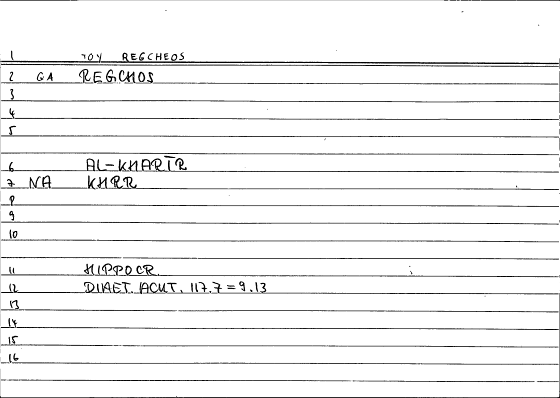 1 TOY REGCHEOS
2 GA REGCHOS
3
4
5
6 AL-KHARĪR
7 NA KHRR
8
9
10
11 HIPPOCR.
12 DIAET. ACUT. 117.7 = 9.13
13
14
15
16